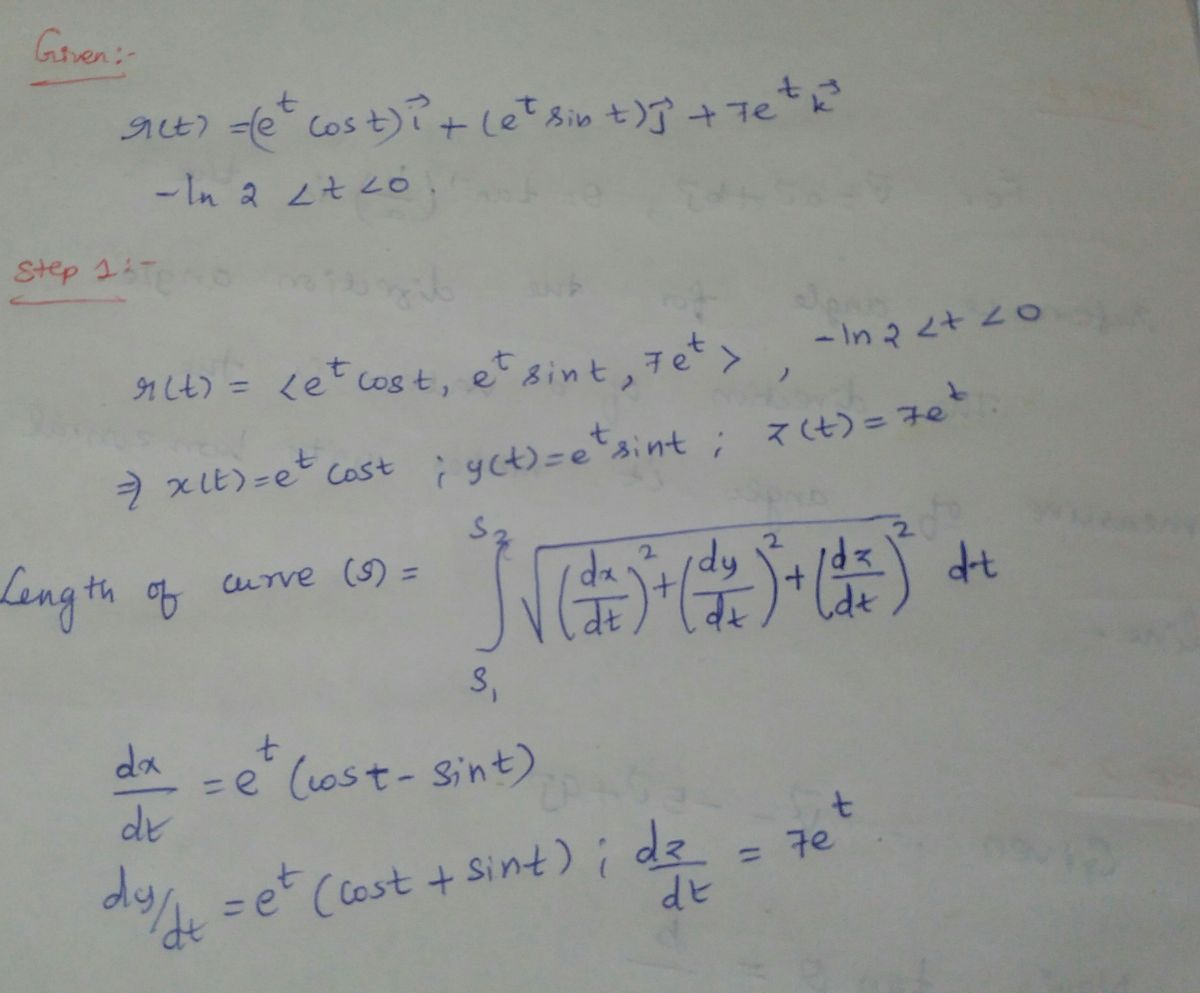 Given:-
r(t) = (e^t cos t) i⃗ + (e^t sin t) j⃗ + 7e^t k⃗
-ln 2 < t < 0.
Step 1:-
r(t) = <e^t cos t, e^t sin t, 7e^t>, -ln 2 < t < 0
⇒ x(t) = e^t cos t ; y(t) = e^t sin t ; z(t) = 7e^t.
Length of curve (s) = ∫_{S₁}^{S₂} √((dx/dt)² + (dy/dt)² + (dz/dt)²) dt
dx/dt = e^t (cos t - sin t)
dy/dt = e^t (cos t + sin t) ; dz/dt = 7e^t.